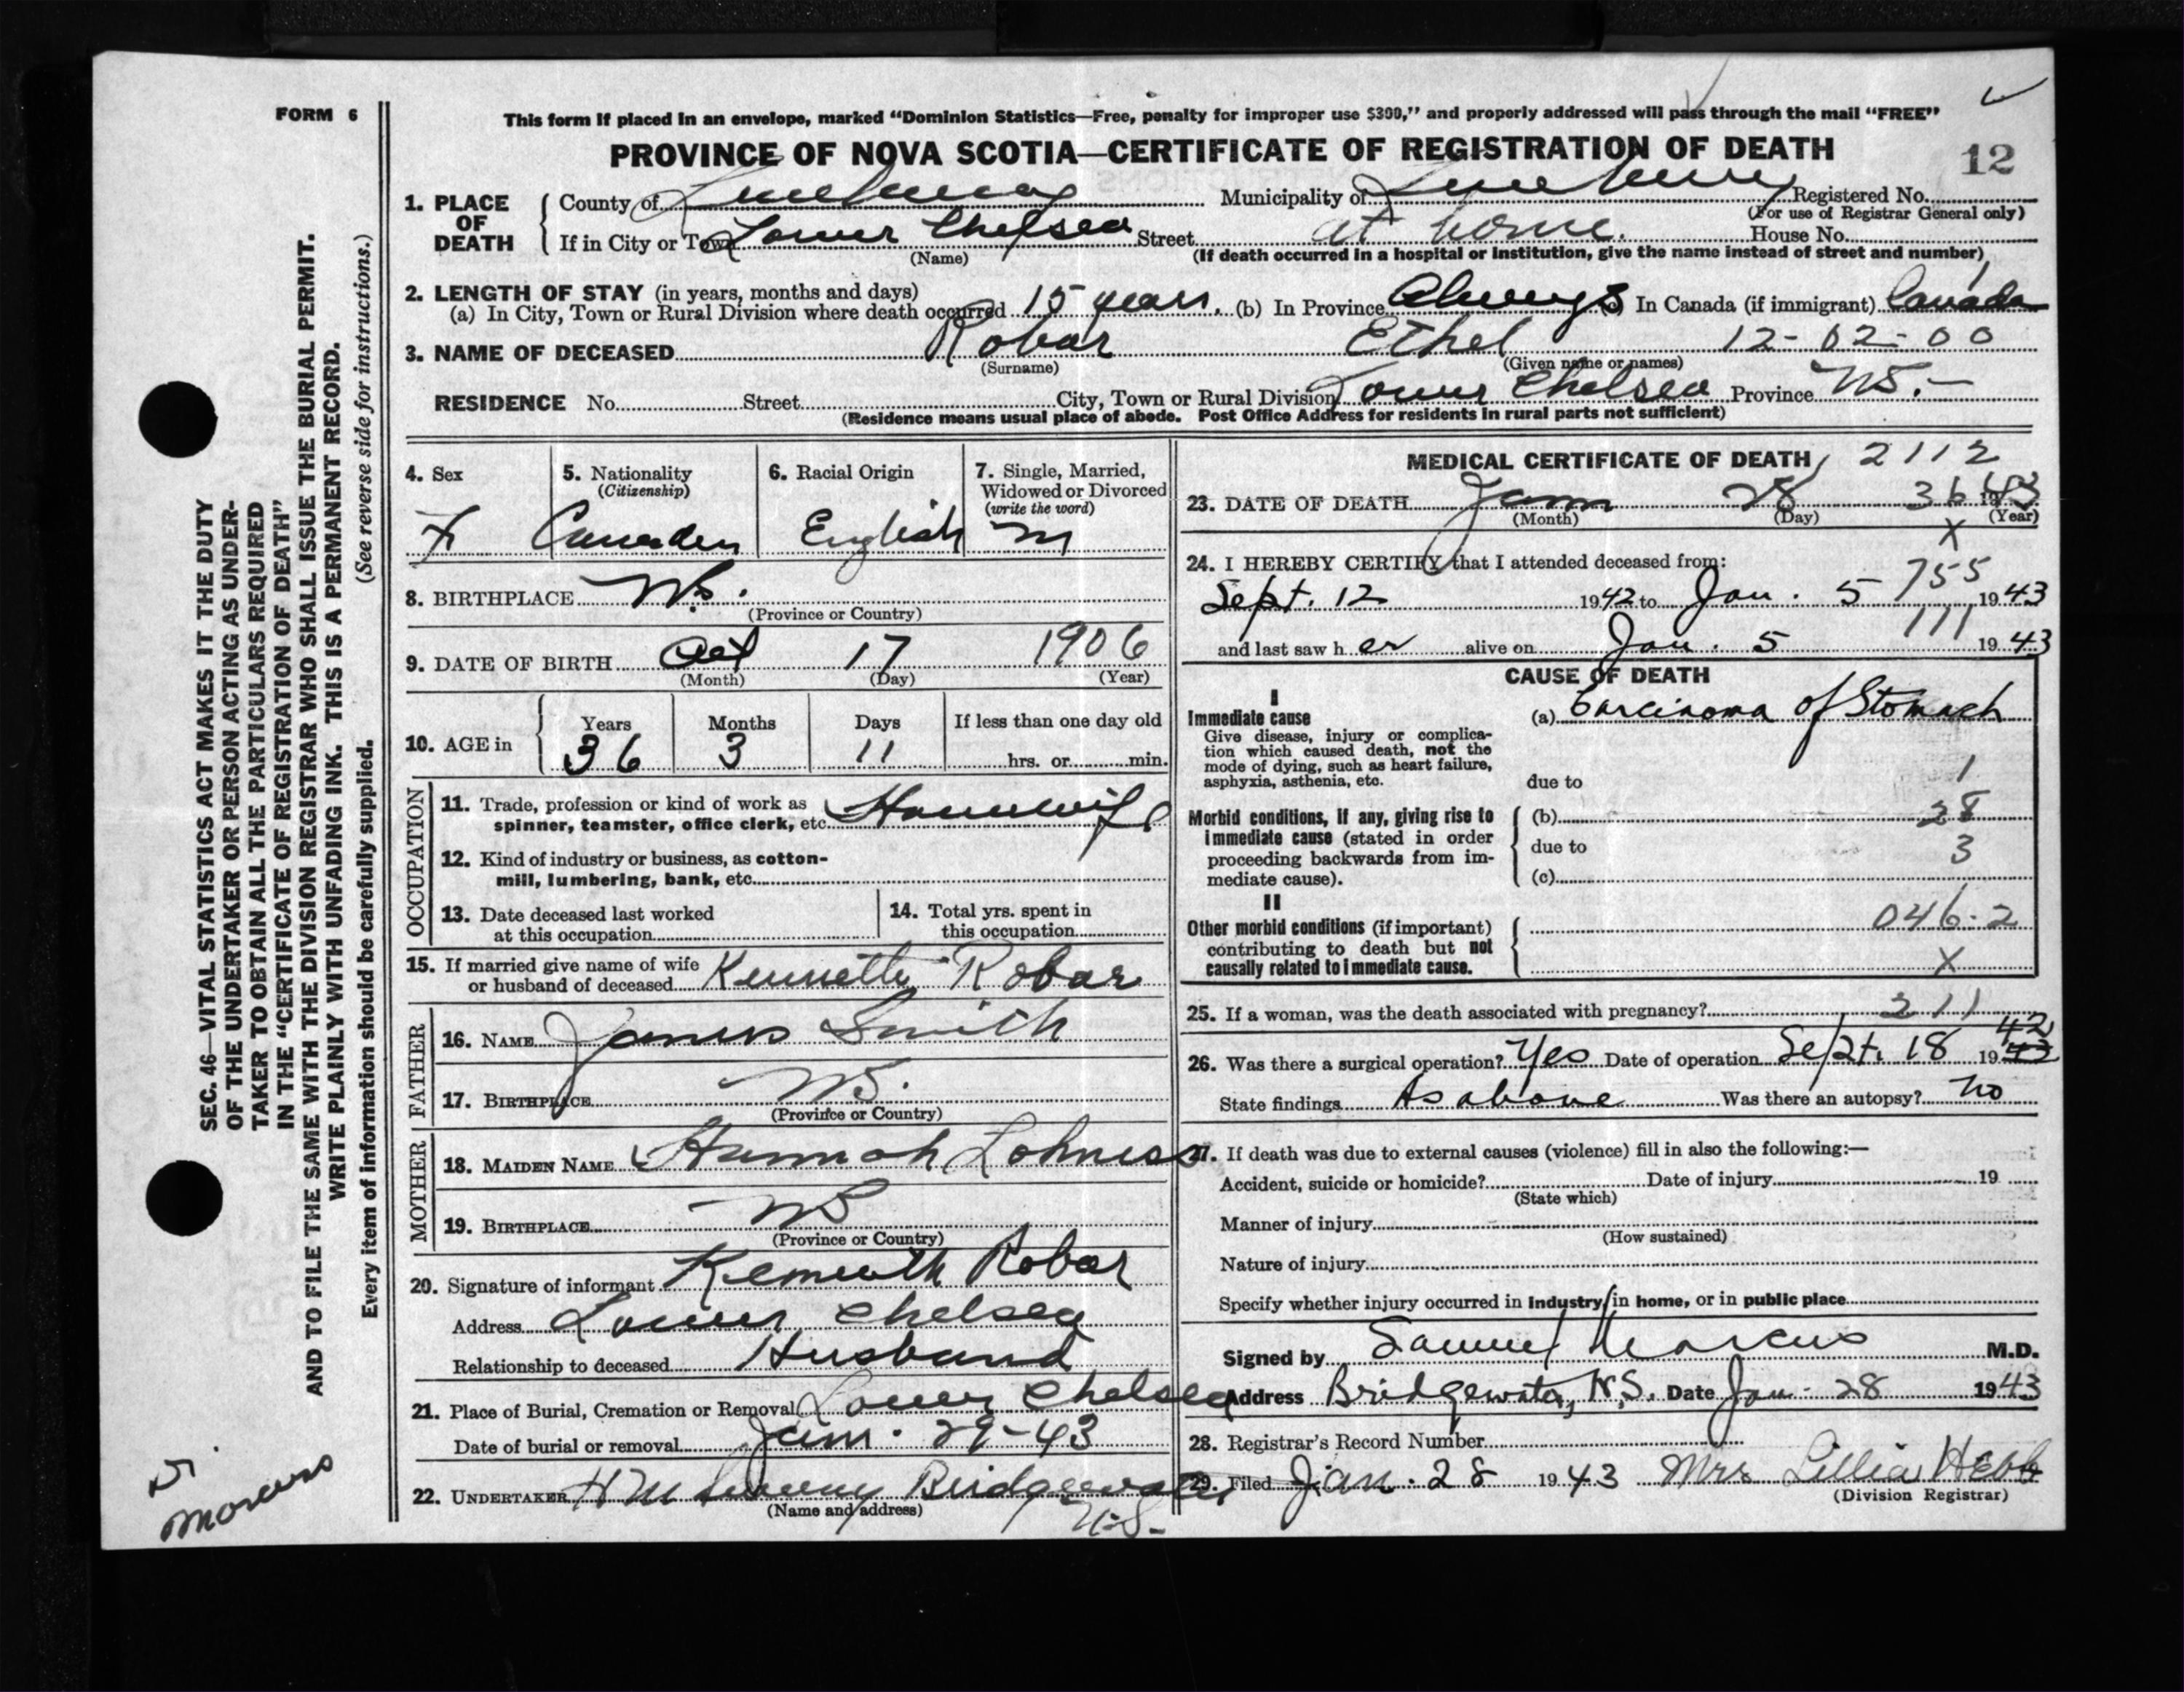 FORM 6
This form if placed in an envelope, marked "Dominion Statistics—Free, penalty for improper use $300," and properly addressed will pass through the mail "FREE"
PROVINCE OF NOVA SCOTIA—CERTIFICATE OF REGISTRATION OF DEATH
12
1. PLACE OF DEATH
County of Lunenburg Municipality of Lunenburg Registered No.
(For use of Registrar General only)
If in City or Town Lower Chelsea Street at home. House No.
(Name) (If death occurred in a hospital or institution, give the name instead of street and number)
2. LENGTH OF STAY (in years, months and days)
(a) In City, Town or Rural Division where death occurred 15 years. (b) In Province Always (c) In Canada (if immigrant) Canada
3. NAME OF DECEASED Robar Ethel 12-02-00
(Surname) (Given name or names)
RESIDENCE No. Street City, Town or Rural Division Lower Chelsea Province NS.-
(Residence means usual place of abode. Post Office Address for residents in rural parts not sufficient)
4. Sex 5. Nationality (Citizenship) 6. Racial Origin 7. Single, Married, Widowed or Divorced (write the word)
F English M
8. BIRTHPLACE N.S.
(Province or Country)
9. DATE OF BIRTH Oct 17 1906
(Month) (Day) (Year)
10. AGE in Years Months Days If less than one day old
36 3 11 hrs. or min.
OCCUPATION
11. Trade, profession or kind of work as
spinner, teamster, office clerk, etc. Housewife
12. Kind of industry or business, as cotton-
mill, lumbering, bank, etc.
13. Date deceased last worked
at this occupation
14. Total yrs. spent in
this occupation
15. If married give name of wife
or husband of deceased Kenneth Robar
FATHER
16. NAME James Smith
17. BIRTHPLACE NS.
(Province or Country)
MOTHER
18. MAIDEN NAME Hannah Lohness
19. BIRTHPLACE NS
(Province or Country)
20. Signature of informant Kenneth Robar
Address Lower Chelsea
Relationship to deceased Husband
21. Place of Burial, Cremation or Removal Lower Chelsea
Date of burial or removal Jan. 29-43
22. UNDERTAKER Bridgewater
(Name and address) N.S.
MEDICAL CERTIFICATE OF DEATH 2112
23. DATE OF DEATH Jan 28 36 1943
(Month) (Day) (Year)
X
24. I HEREBY CERTIFY that I attended deceased from:
755
Sept. 12 1942 to Jan. 5 1943
111
and last saw h er alive on Jan. 5 1943
CAUSE OF DEATH
I
Immediate cause (a) Carcinoma of Stomach
Give disease, injury or complica-
tion which caused death, not the
mode of dying, such as heart failure,
asphyxia, asthenia, etc. due to 1
Morbid conditions, if any, giving rise to (b) 28
immediate cause (stated in order
proceeding backwards from im- due to 3
mediate cause). (c)
II
Other morbid conditions (if important) 046.2
contributing to death but not
causally related to immediate cause. X
25. If a woman, was the death associated with pregnancy? 211
42
26. Was there a surgical operation? Yes Date of operation Sept. 18 1943
State findings As above Was there an autopsy? No
27. If death was due to external causes (violence) fill in also the following:—
Accident, suicide or homicide? Date of injury 19
(State which)
Manner of injury
(How sustained)
Nature of injury
Specify whether injury occurred in industry, in home, or in public place
Signed by Samuel Marcus M.D.
Address Bridgewater, N.S. Date Jan. 28 1943
28. Registrar's Record Number
29. Filed Jan. 28 1943 Mrs Lillia Hebb
(Division Registrar)
SEC. 46—VITAL STATISTICS ACT MAKES IT THE DUTY
OF THE UNDERTAKER OR PERSON ACTING AS UNDER-
TAKER TO OBTAIN ALL THE PARTICULARS REQUIRED
IN THE "CERTIFICATE OF REGISTRATION OF DEATH"
AND TO FILE THE SAME WITH THE DIVISION REGISTRAR WHO SHALL ISSUE THE BURIAL PERMIT.
WRITE PLAINLY WITH UNFADING INK. THIS IS A PERMANENT RECORD.
Every item of information should be carefully supplied. (See reverse side for instructions.)
Marcus